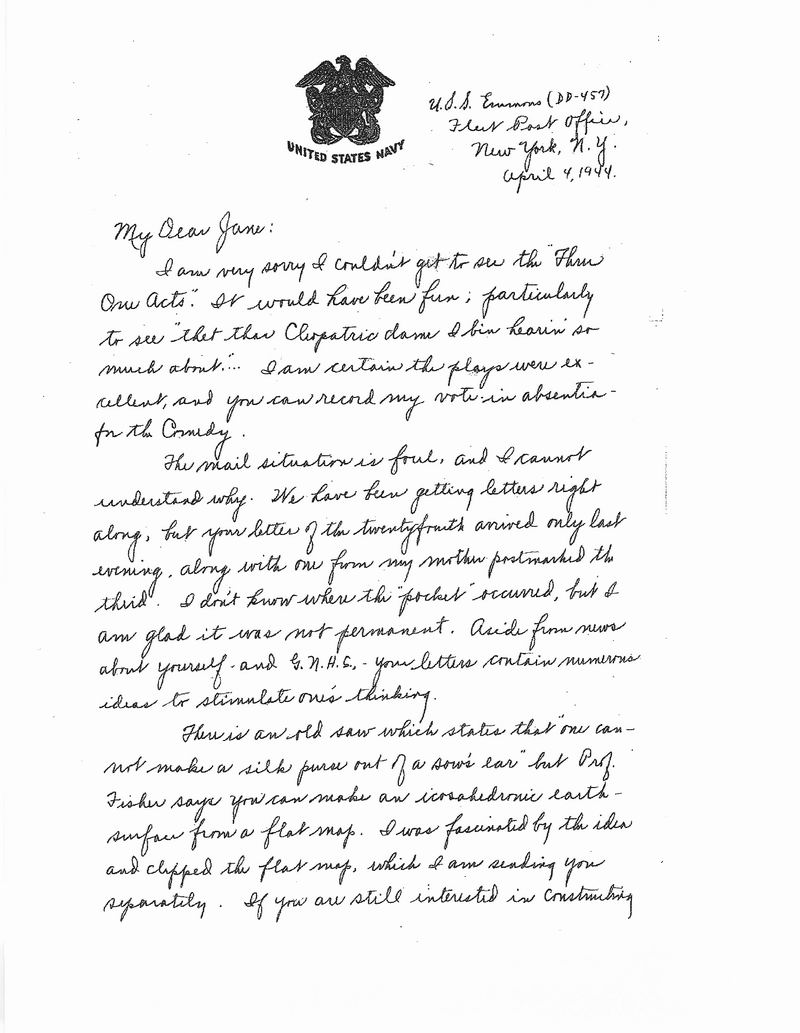 UNITED STATES NAVY
U.S.S. Emmons (DD-457)
Fleet Post Office,
New York, N.Y.
April 4, 1944.
My Dear Jane:
I am very sorry I couldn't get to see the "Three
One Acts". It would have been fun; particularly
to see "thet thar Cleopatric dame I bin hearin' so
much about."... I am certain the plays were ex-
cellent, and you can record my vote - in absentia -
for the Comedy.
The mail situation is foul, and I cannot
understand why. We have been getting letters right
along, but your letter of the twentyfourth arrived only last
evening, along with one from my mother postmarked the
third. I don't know where the "pocket" occurred, but I
am glad it was not permanent. Aside from news
about yourself - and G.N.H.S., - your letters contain numerous
ideas to stimulate one's thinking.
There is an old saw which states that "one can-
not make a silk purse out of a sow's ear" but Prof.
Fisher says you can make an icosahedronic earth-
surface from a flat map. I was fascinated by the idea
and clipped the flat map, which I am sending you
separately. If you are still interested in constructing